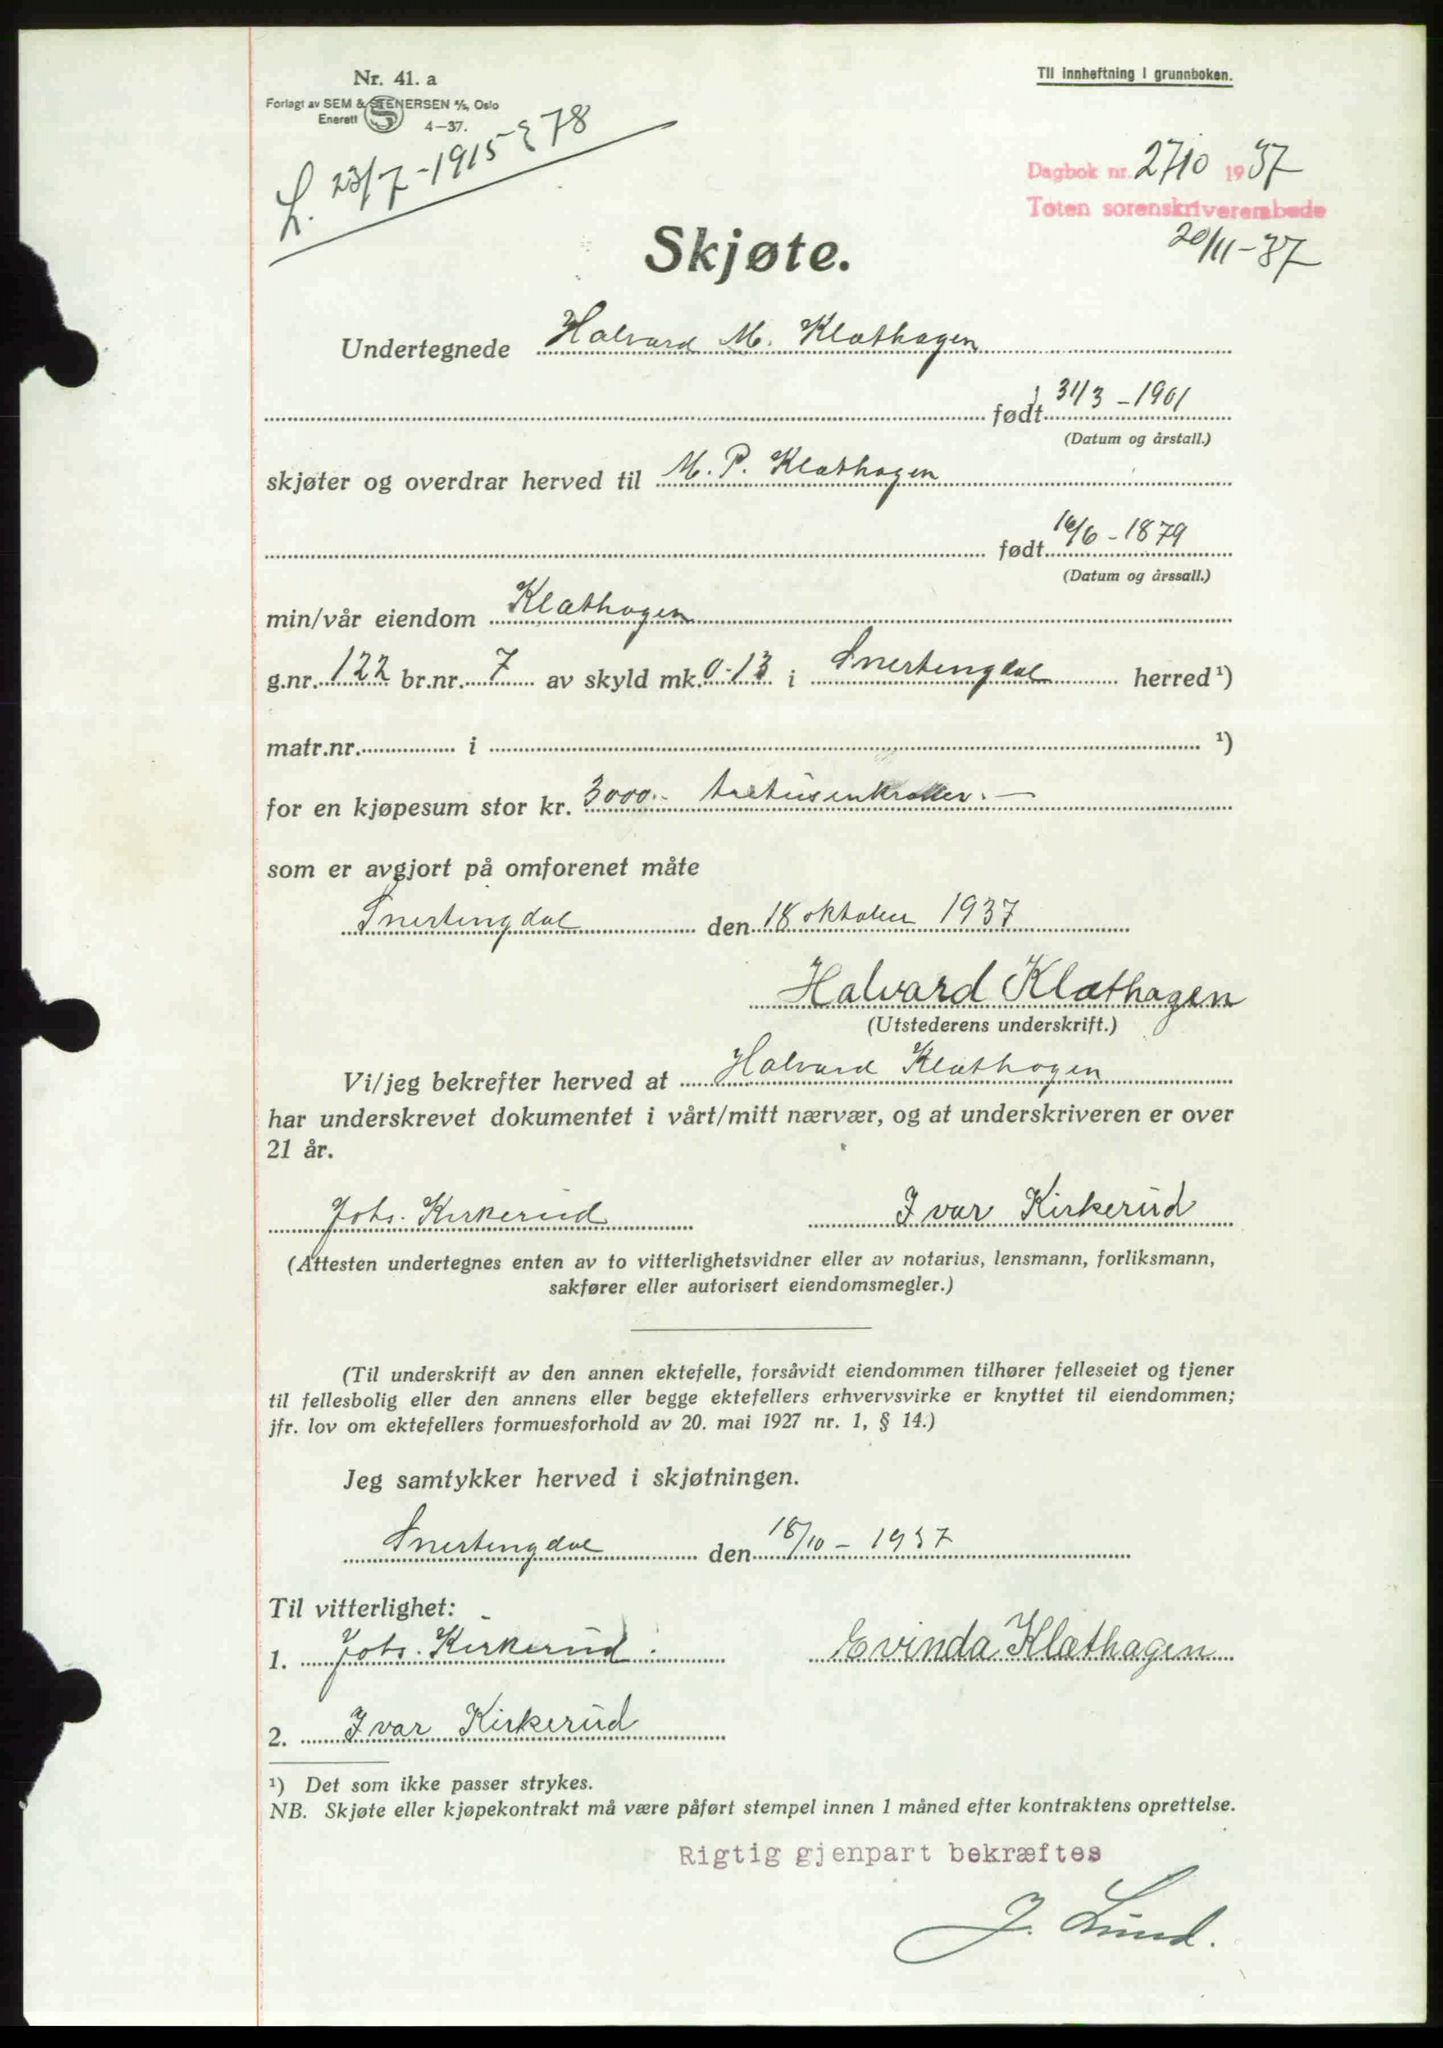 Nr. 41. a
Forlagt av SEM & STENERSEN A/S, Oslo
Enerett 4—37.
L. 23/7-1915 § 78
Til innheftning i grunnboken.
Dagbok nr. 2710 1937
Toten sorenskriverembede
20/11-37
Skjøte.
Undertegnede Halvard M. Klæthagen
født 31/3 - 1901
(Datum og årstall.)
skjøter og overdrar herved til M. P. Klæthagen
født 16/6 - 1879
(Datum og årssall.)
min/vår eiendom Klæthagen
g.nr. 122 br.nr. 7 av skyld mk. 0-13 i Snertingdal herred ¹)
matr.nr. i ¹)
for en kjøpesum stor kr. 3000.-
som er avgjort på omforenet måte
Snertingdal den 18 oktober 1937
Halvard Klæthagen
(Utstederens underskrift.)
Vi/jeg bekrefter herved at Halvard Klæthagen
har underskrevet dokumentet i vårt/mitt nærvær, og at underskriveren er over
21 år.
Johs. Kirkerud Ivar Kirkerud
(Attesten undertegnes enten av to vitterlighetsvidner eller av notarius, lensmann, forliksmann,
sakfører eller autorisert eiendomsmegler.)
(Til underskrift av den annen ektefelle, forsåvidt eiendommen tilhører felleseiet og tjener
til fellesbolig eller den annens eller begge ektefellers erhvervsvirke er knyttet til eiendommen;
jfr. lov om ektefellers formuesforhold av 20. mai 1927 nr. 1, § 14.)
Jeg samtykker herved i skjøtningen.
Snertingdal den 18/10 - 1937
Til vitterlighet:
1. Johs. Kirkerud. Evinda Klæthagen
2. Ivar Kirkerud
¹) Det som ikke passer strykes.
NB. Skjøte eller kjøpekontrakt må være påført stempel innen 1 måned efter kontraktens oprettelse.
Rigtig gjenpart bekræftes
J. Lund.